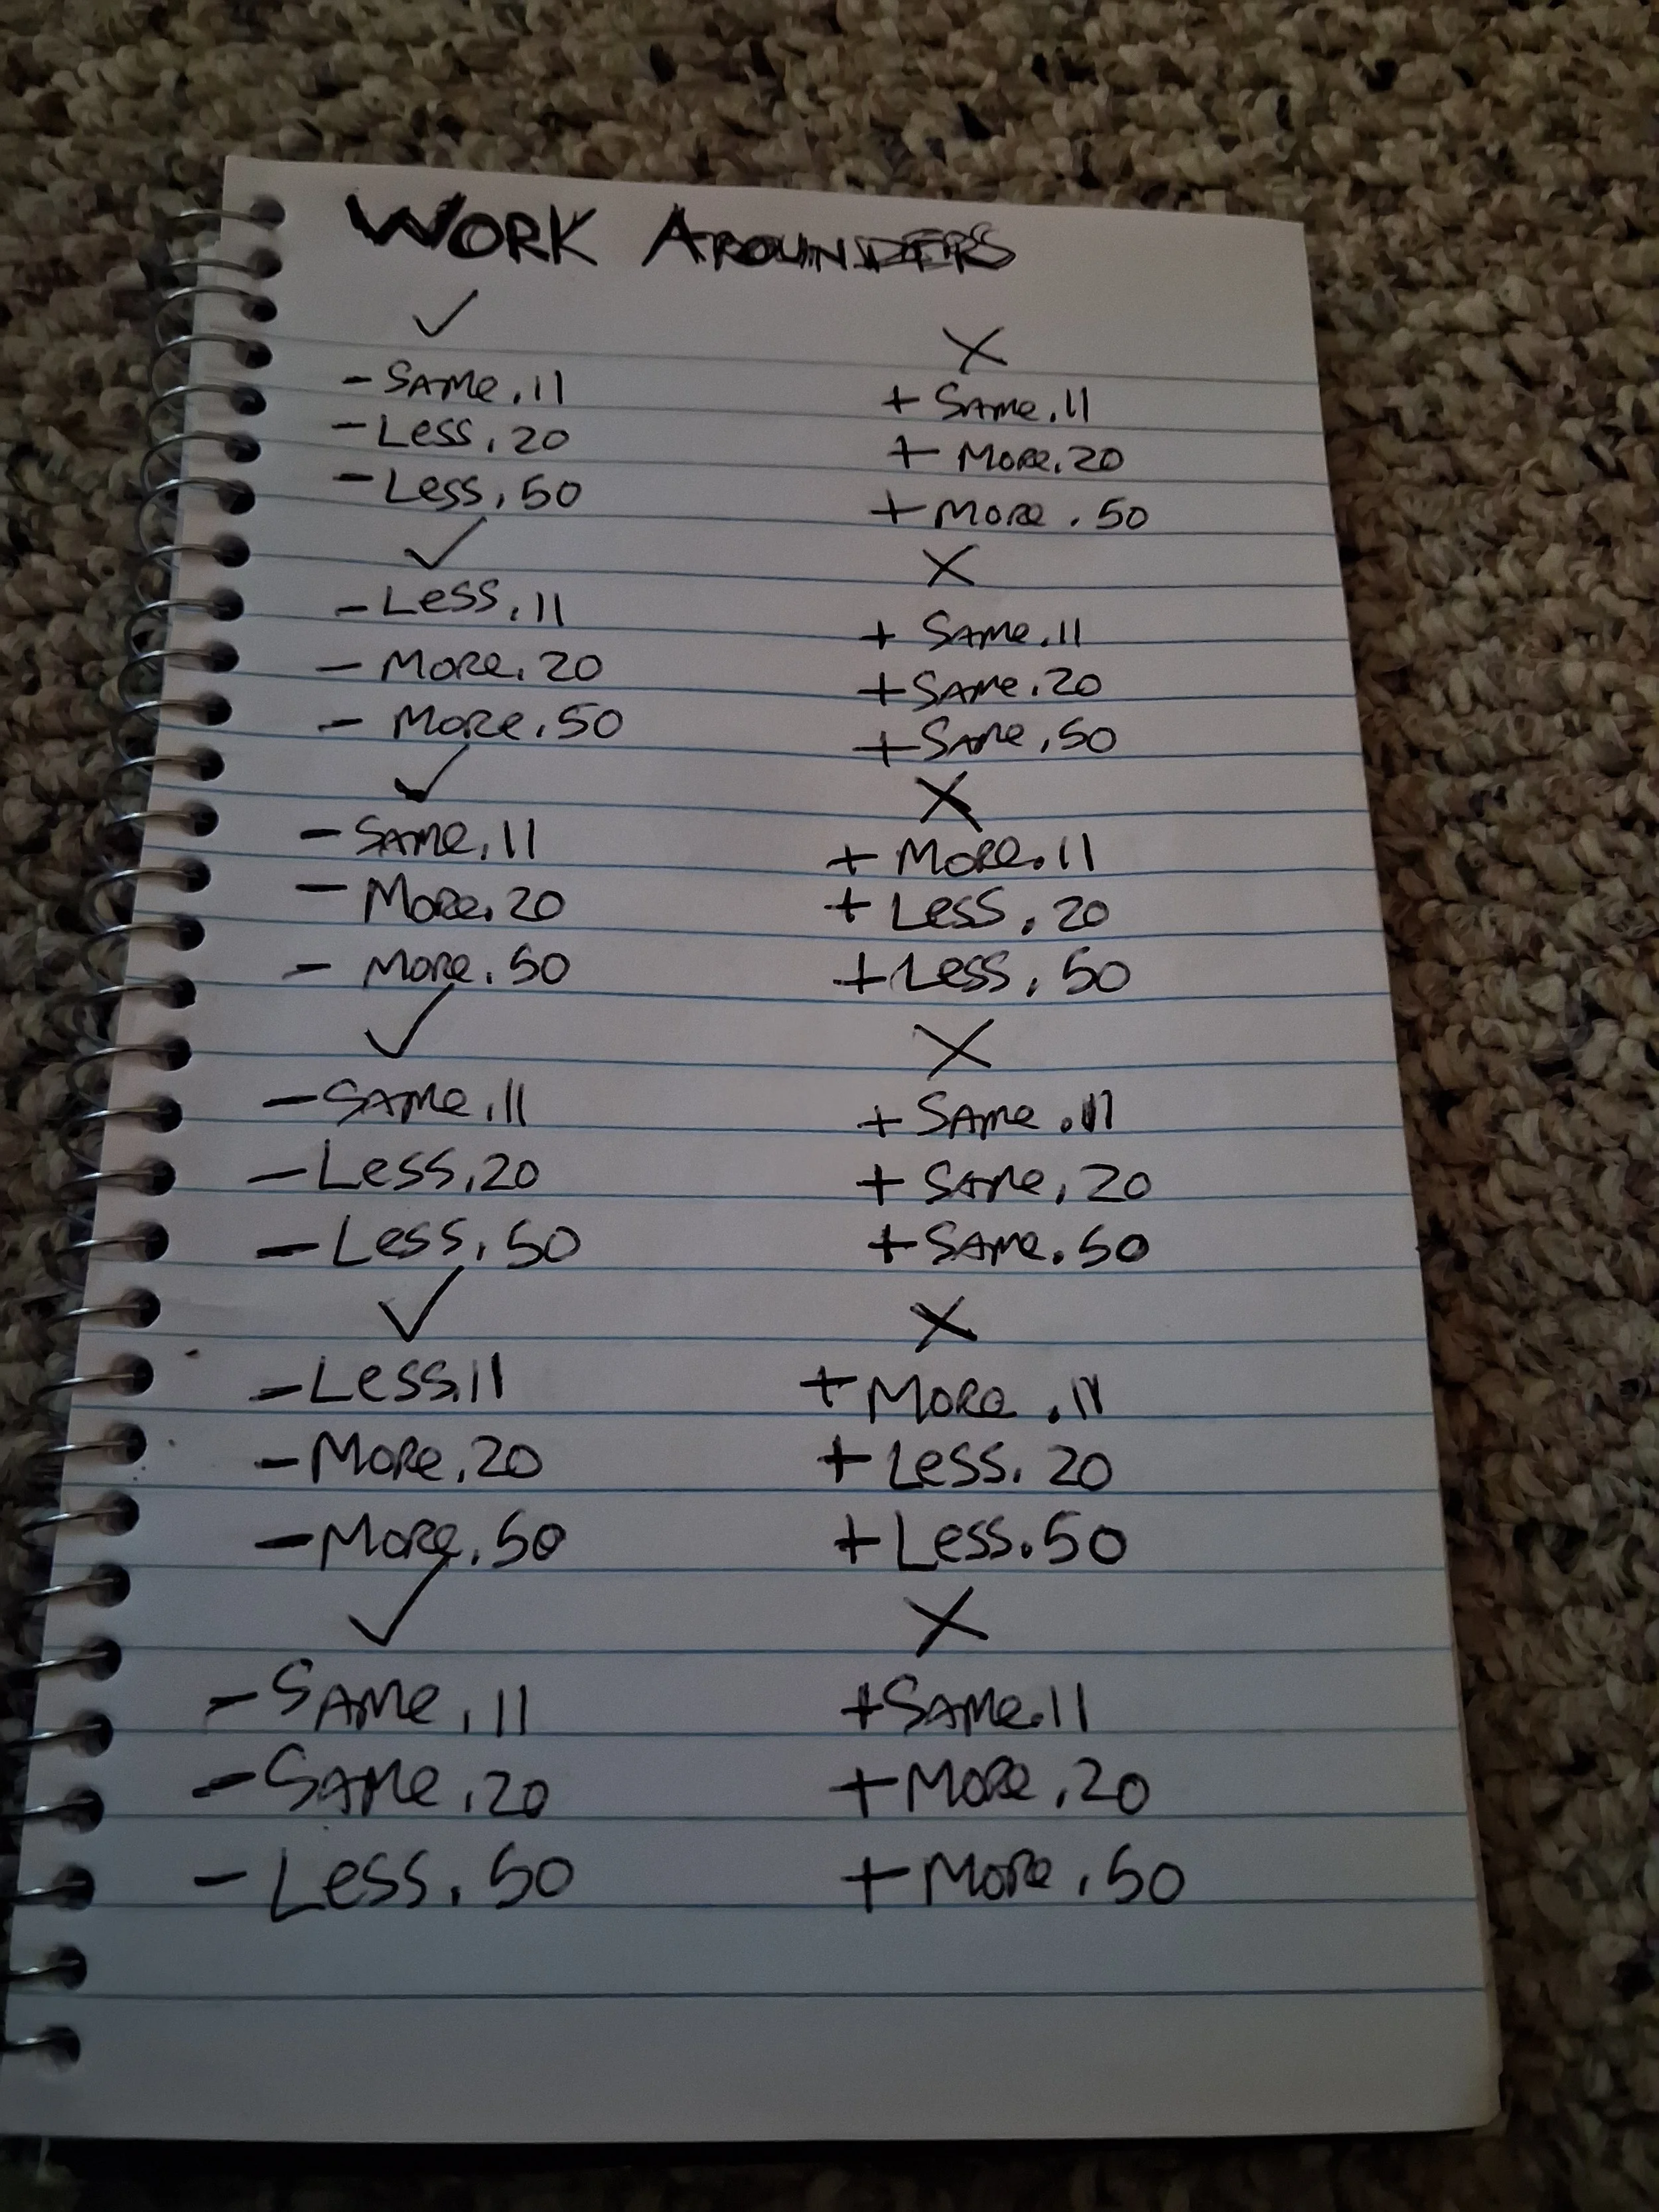 WORK AROUNDERS
✓ X
- SAMe.11 + SAMe.11
- Less.20 + MORe.20
- Less.50 + MORe.50
✓ X
- Less.11 + SAMe.11
- MORe.20 + SAMe.20
- MORe.50 + SAMe.50
✓ X
- SAMe.11 + MORe.11
- MORe.20 + Less.20
- MORe.50 + Less.50
✓ X
- SAMe.11 + SAMe.11
- Less.20 + SAMe.20
- Less.50 + SAMe.50
✓ X
- Less.11 + MORe.11
- MORe.20 + Less.20
- MORe.50 + Less.50
✓ X
- SAMe.11 + SAMe.11
- SAMe.20 + MORe.20
- Less.50 + MORe.50